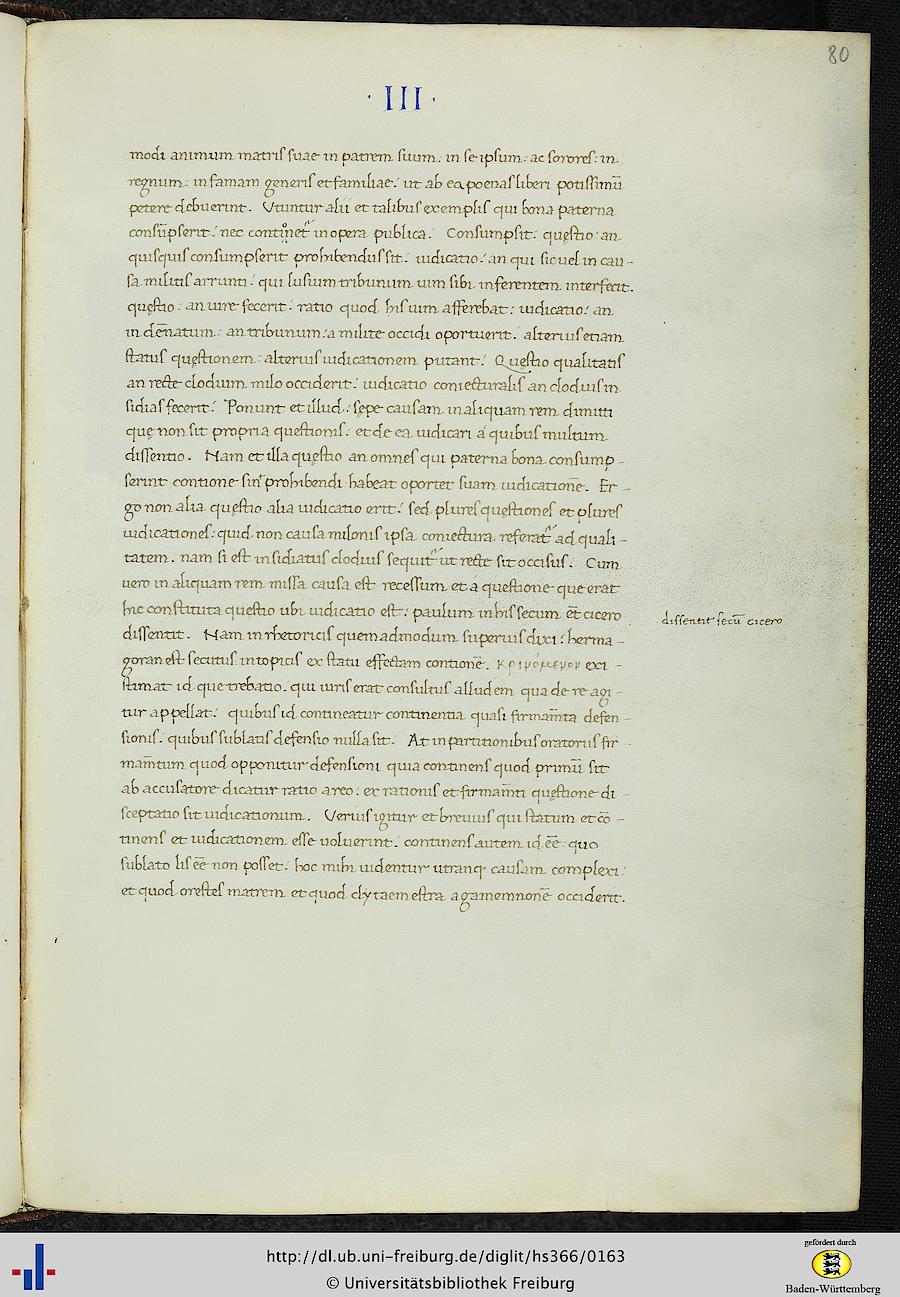 80
· III ·
modi animum matris suae in patrem suum: in se ipsum: ac sorores: in
regnum: in famam generis et familiae: ut ab ea poenas liberi potissimū
petere debuerint. Vtuntur alii et talibus exemplis qui bona paterna
consūpserit: nec in opera publica: Consumpsit: quęstio: an
quisquis consumpserit prohibendus sit: iudicatio: an qui sic uel in cau-
sa militis arrunti: qui lusium tribunum uim sibi inferentem interfecit.
quęstio: an iure fecerit: ratio quod his uim afferebat: iudicatio: an
in dēnatum: an tribunum: a milite occidi oportuerit: alterius etiam
status quęstionem: alterius iudicationem putant: Quęstio qualitatis
an recte clodium milo occiderit: iudicatio coniecturalis an clodius in
sidias fecerit: Ponunt et illud: sępe causam in aliquam rem dimitti
quę non sit propria questionis: et de ea iudicari a quibus multum
dissentio. Nam et illa quęstio an omnes qui paterna bona consump-
serint contione sint prohibendi habeat oportet suam iudicationē. Er-
go non alia quęstio alia iudicatio erit: sed plures questiones et plures
iudicationes: quid non causa milonis ipsa coniectura referat ad quali-
tatem. nam si est insidiatus clodius sequit ut recte sit occisus: Cum
uero in aliquam rem missa causa est recessum et a questione que erat
hic constituta questio ubi iudicatio est: paulum in his secum ēt cicero
dissentit secū cicero
dissentit. Nam in rhetoricis quemadmodum superius dixi: herma-
goran est secutus: in topicis ex statu effectam contionē. κρινόμενον exi-
stimat id que trebatio: qui iuris erat consultus alludem qua de re agi-
tur appellat: quibus id contineatur continentia quasi firmam̄ta defen-
sionis: quibus sublatis defensio nulla sit: At in partitionibus oratoriis fir-
mam̄tum quod opponitur defensioni quia continens quod primū sit
ab accusatore dicatur ratio a reo: ex rationis et firmam̄ti quęstione di-
sceptatio sit iudicationum. Verius igitur et breuius qui statum et cō-
tinens et iudicationem esse uoluerint: continens autem id eē: quo
sublato lis eē non posset: hoc mihi uidentur utranq; causam complexi:
et quod orestes matrem et quod clytaemestra agamemnonē occiderit.
http://dl.ub.uni-freiburg.de/diglit/hs366/0163
© Universitätsbibliothek Freiburg
gefördert durch
Baden-Württemberg